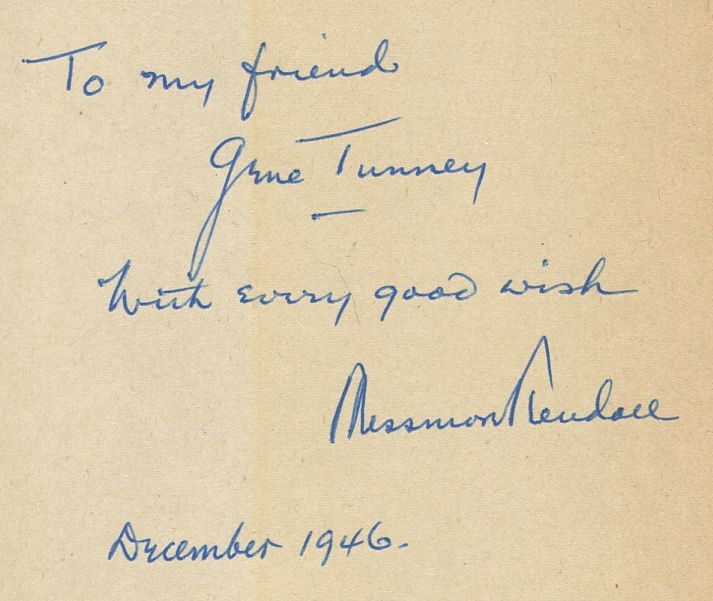 To my friend
Gene Tunney
With every good wish
Messmore Kendall
December 1946.